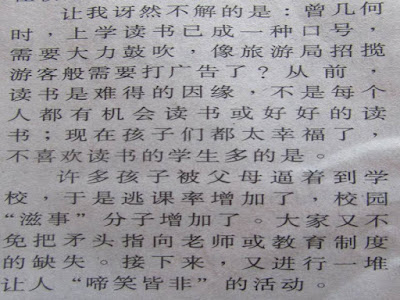 让我讶然不解的是：曾几何
时，上学读书已成一种口号，
需要大力鼓吹，像旅游局招揽
游客般需要打广告了？从前，
读书是难得的因缘，不是每个
人都有机会读书或好好的读
书；现在孩子们都太幸福了，
不喜欢读书的学生多的是。
许多孩子被父母逼着到学
校，于是逃课率增加了，校园
“滋事”分子增加了。大家又不
免把矛头指向老师或教育制度
的缺失。接下来，又进行一堆
让人“啼笑皆非”的活动。